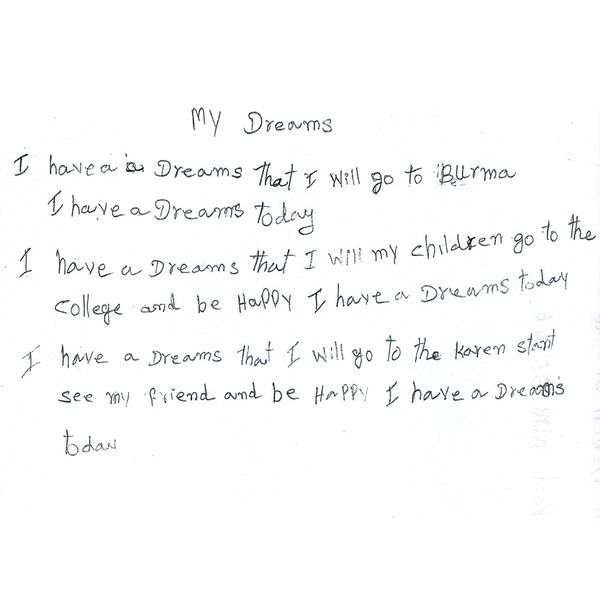 My Dreams
I have a a Dreams that I will go to Burma
I have a Dreams today
I have a Dreams that I will my children go to the
College and be HaPPY I have a Dreams today
I have a Dreams that I will go to the Karen start
see my friend and be HaPPY I have a Dreams
today